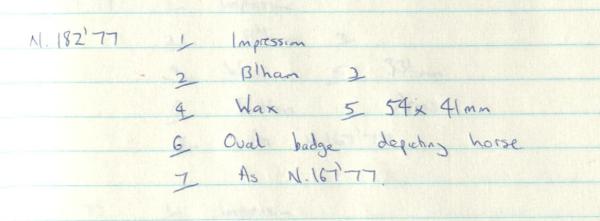 N. 182'77 1 Impression
2 B'ham 3
4 Wax 5 54 x 41mm
6 Oval badge depicting horse
7 As N.167'77.